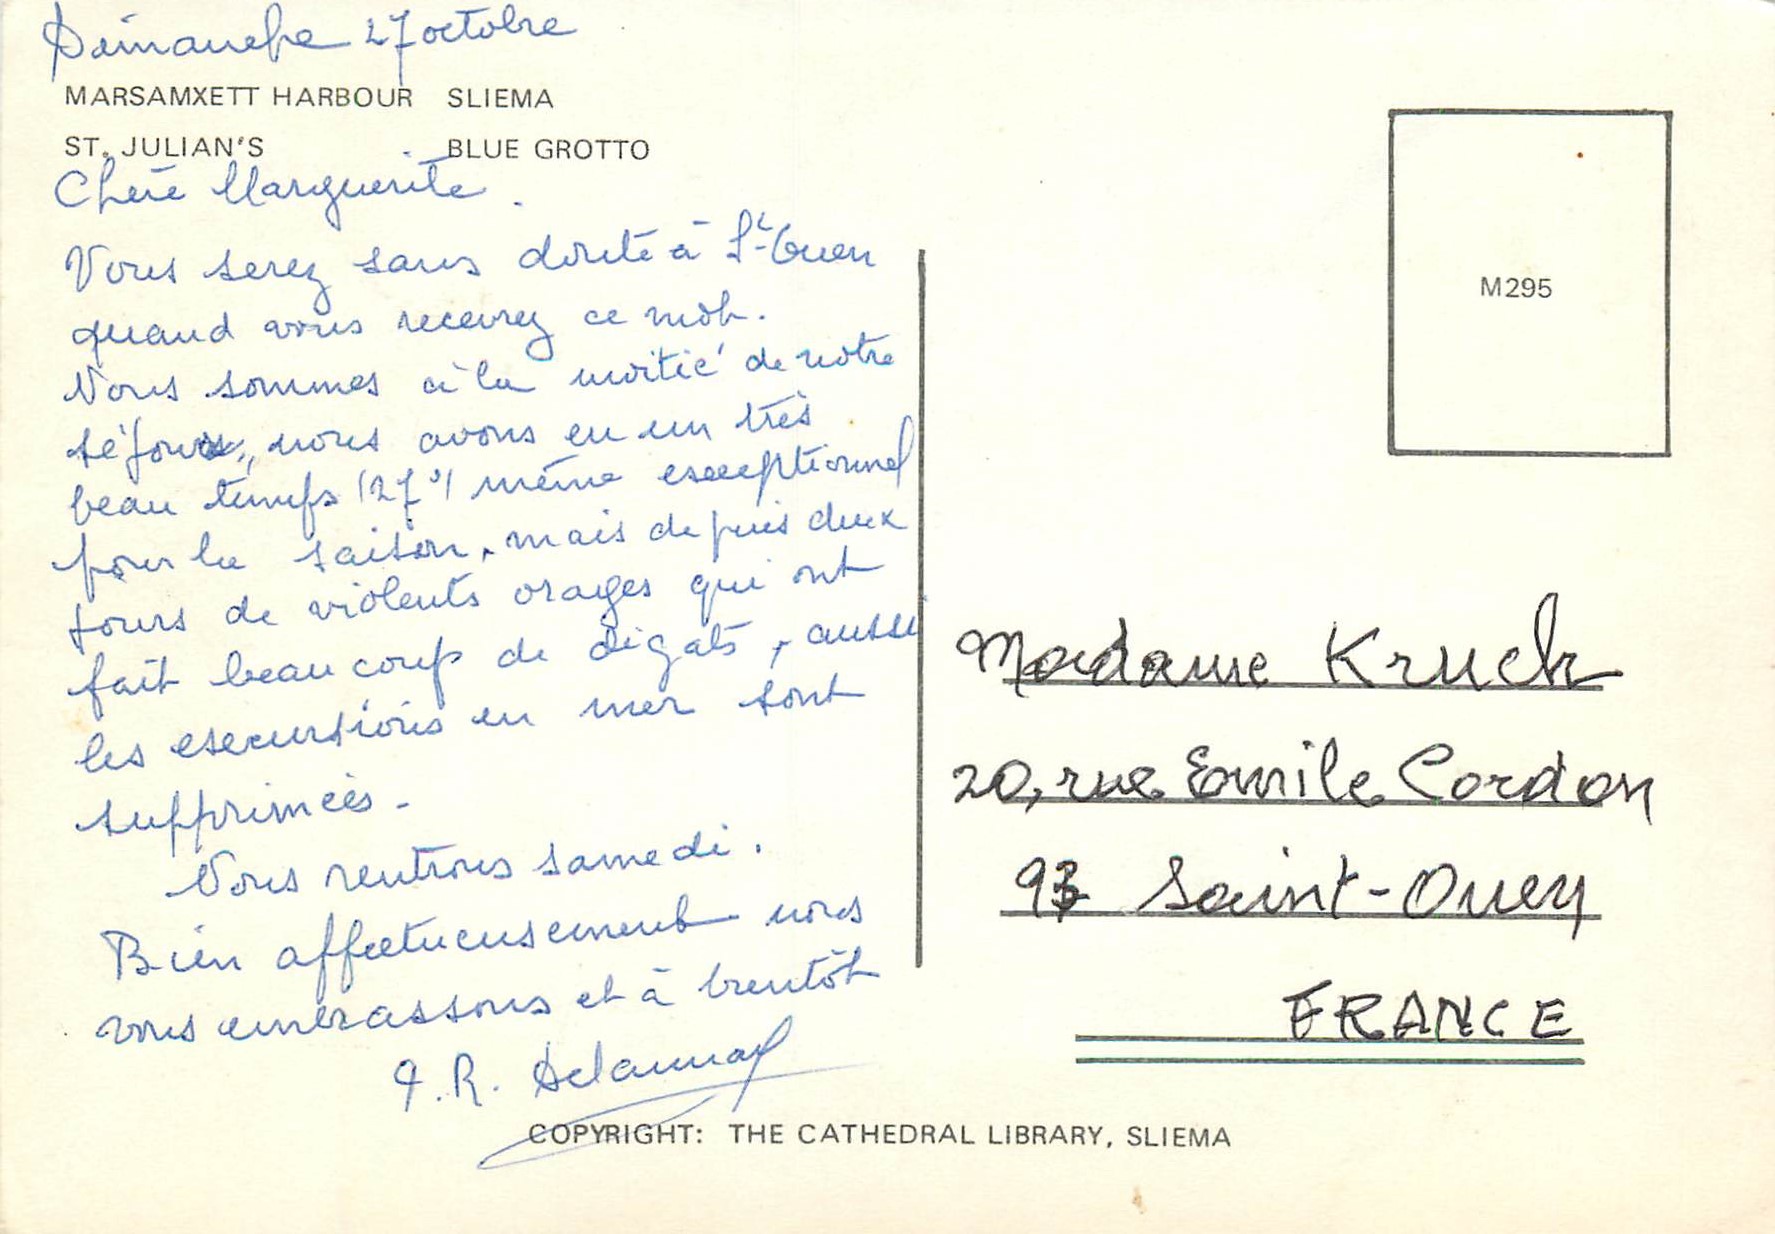 Dimanche 27 octobre
MARSAMXETT HARBOUR SLIEMA
ST. JULIAN'S BLUE GROTTO
Chère Marguerite.
Vous serez sans doute à St-Ouen
quand vous recevrez ce mot.
Nous sommes à la moitié de notre
séjour, nous avons eu un très
beau temps (27°) même exceptionnel
pour la saison, mais depuis deux
jours de violents orages qui ont
fait beaucoup de dégats, aussi
les excursions en mer sont
supprimées -
Nous rentrons samedi.
Bien affectueusement nous
vous embrassons et à bientôt
R. Delaunay
M295
Madame Kruch
20, rue Emile Cordon
93 Saint-Ouen
FRANCE
COPYRIGHT: THE CATHEDRAL LIBRARY, SLIEMA